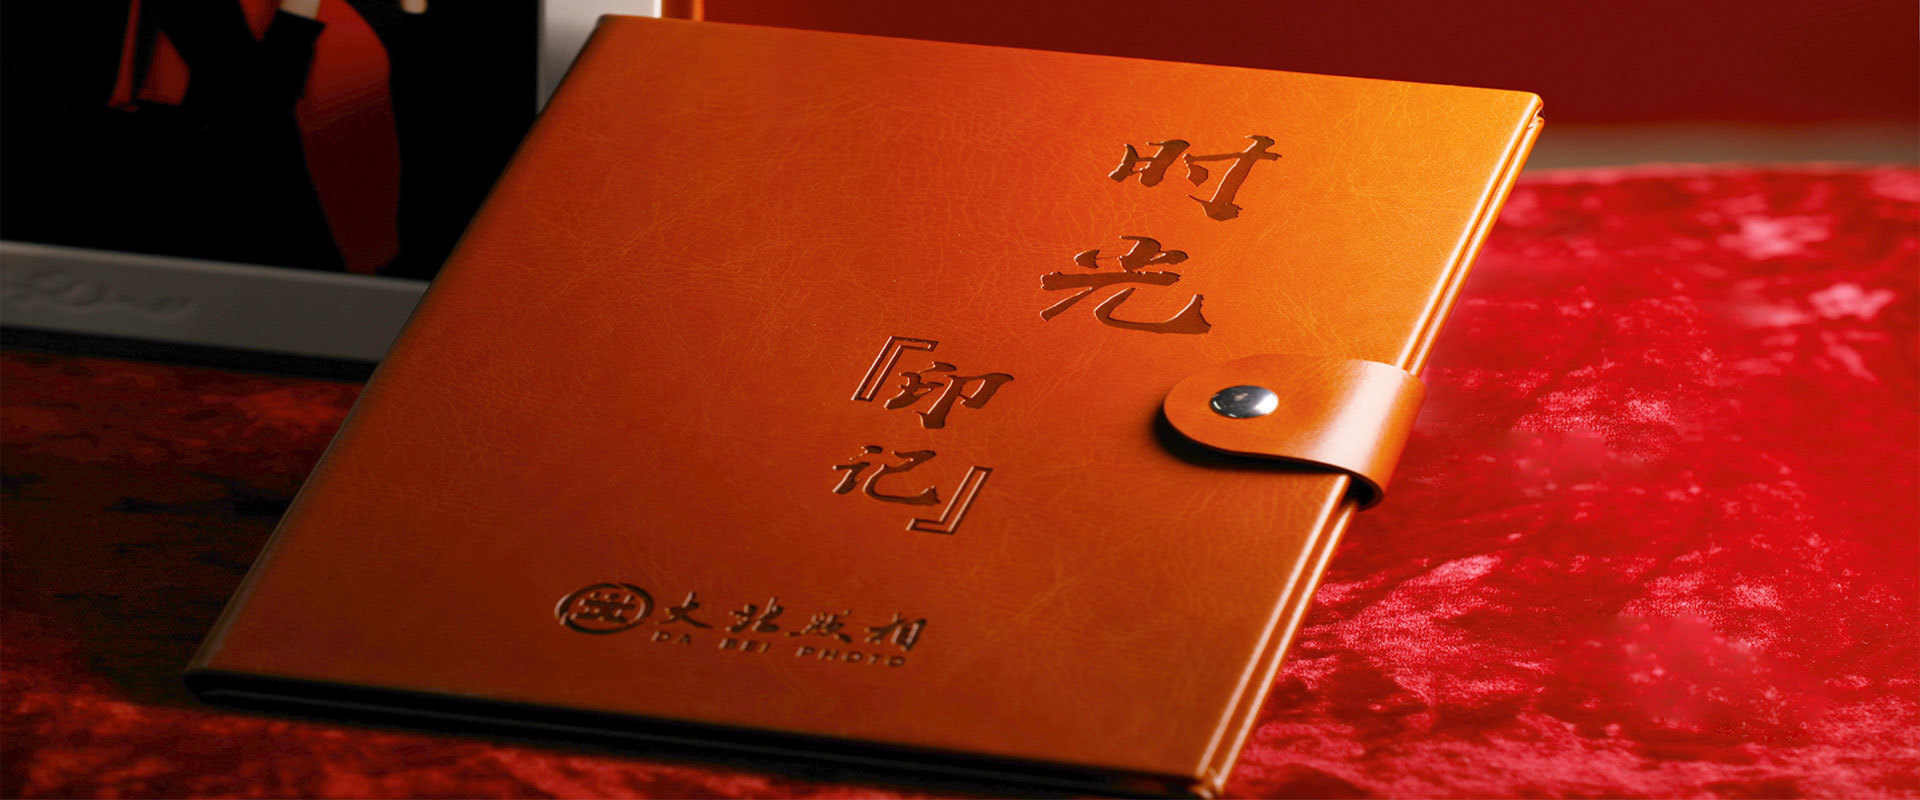 时光
『印记』
大北照相
DA BEI PHOTO